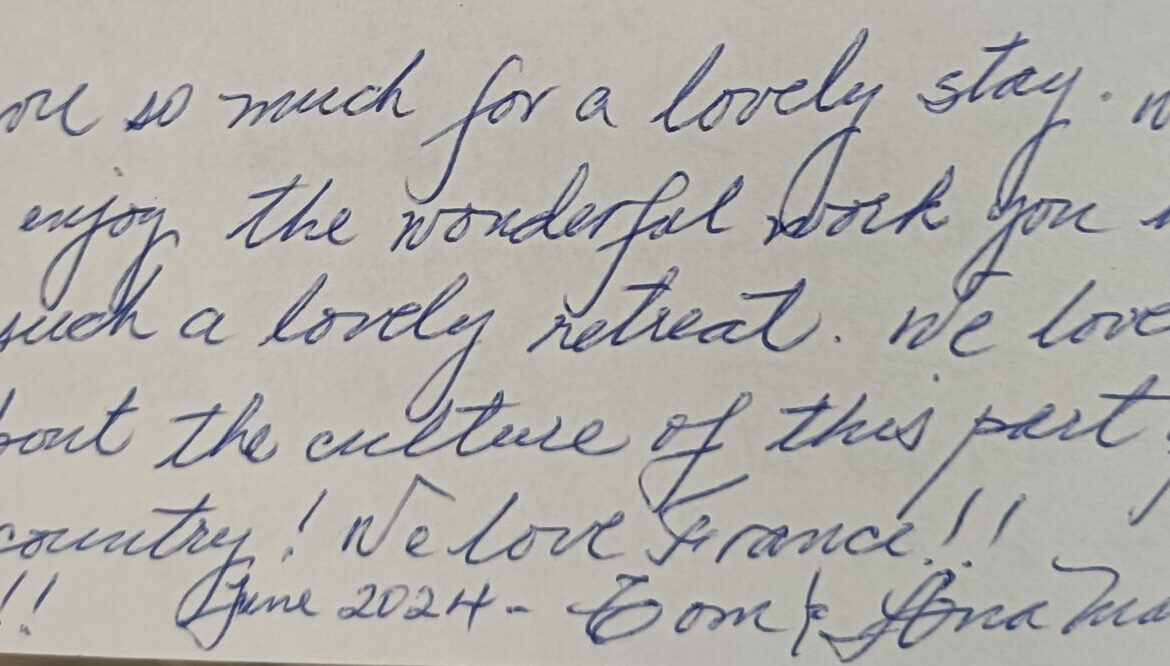 so much for a lovely stay.
enjoy the wonderful work you
such a lovely retreat. We love
the culture of this part
country! We love France!!
!! June 2024 - Tom & Ana